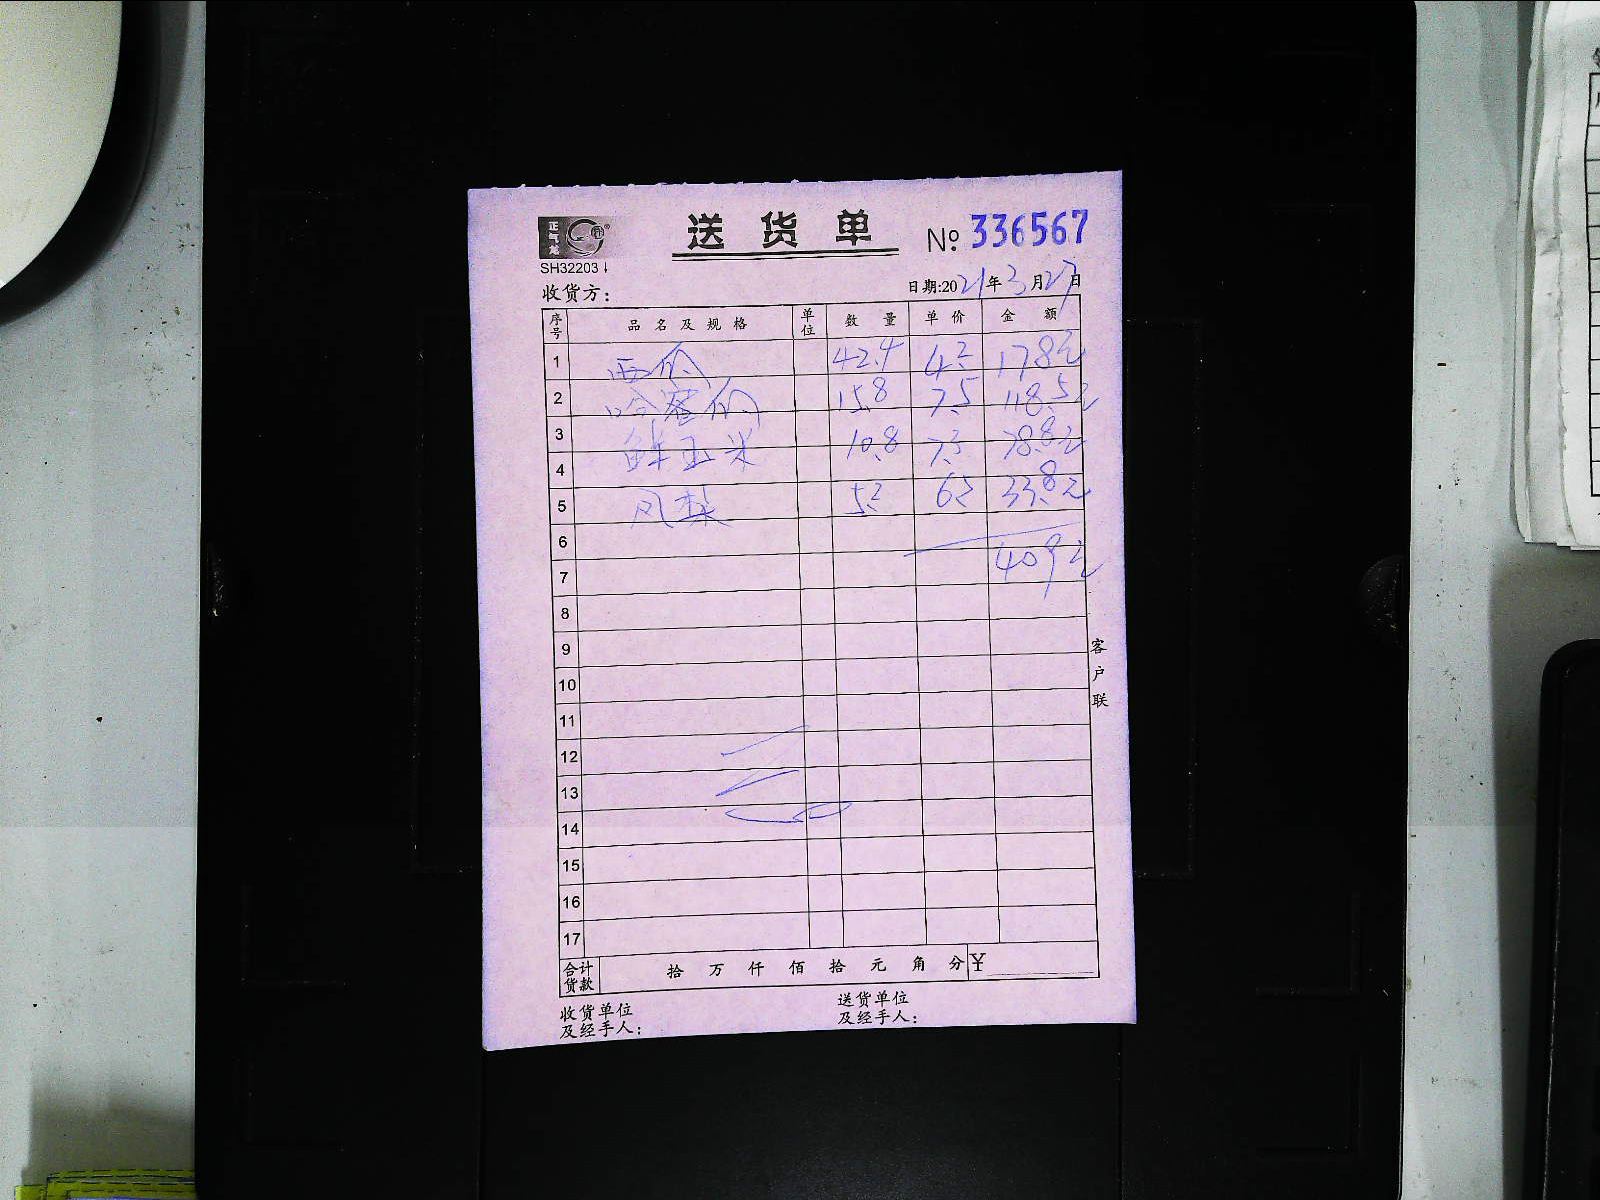 正气龙
送货单 № 336567
SH32203
收货方： 日期:2021年3月27日
序号 品名及规格 单位 数量 单价 金额
1 西瓜 42.4 4.2 178元
2 哈蜜瓜 15.8 7.5 118.5元
3 鲜玉米 10.8 7.3 78.8元
4
5 5.2 6.5 33.8元
6
7 409元
8
9
10
11
12
13
14
15
16
17
客户联
合计货款 拾 万 仟 佰 拾 元 角 分 ¥
收货单位 送货单位
及经手人： 及经手人：